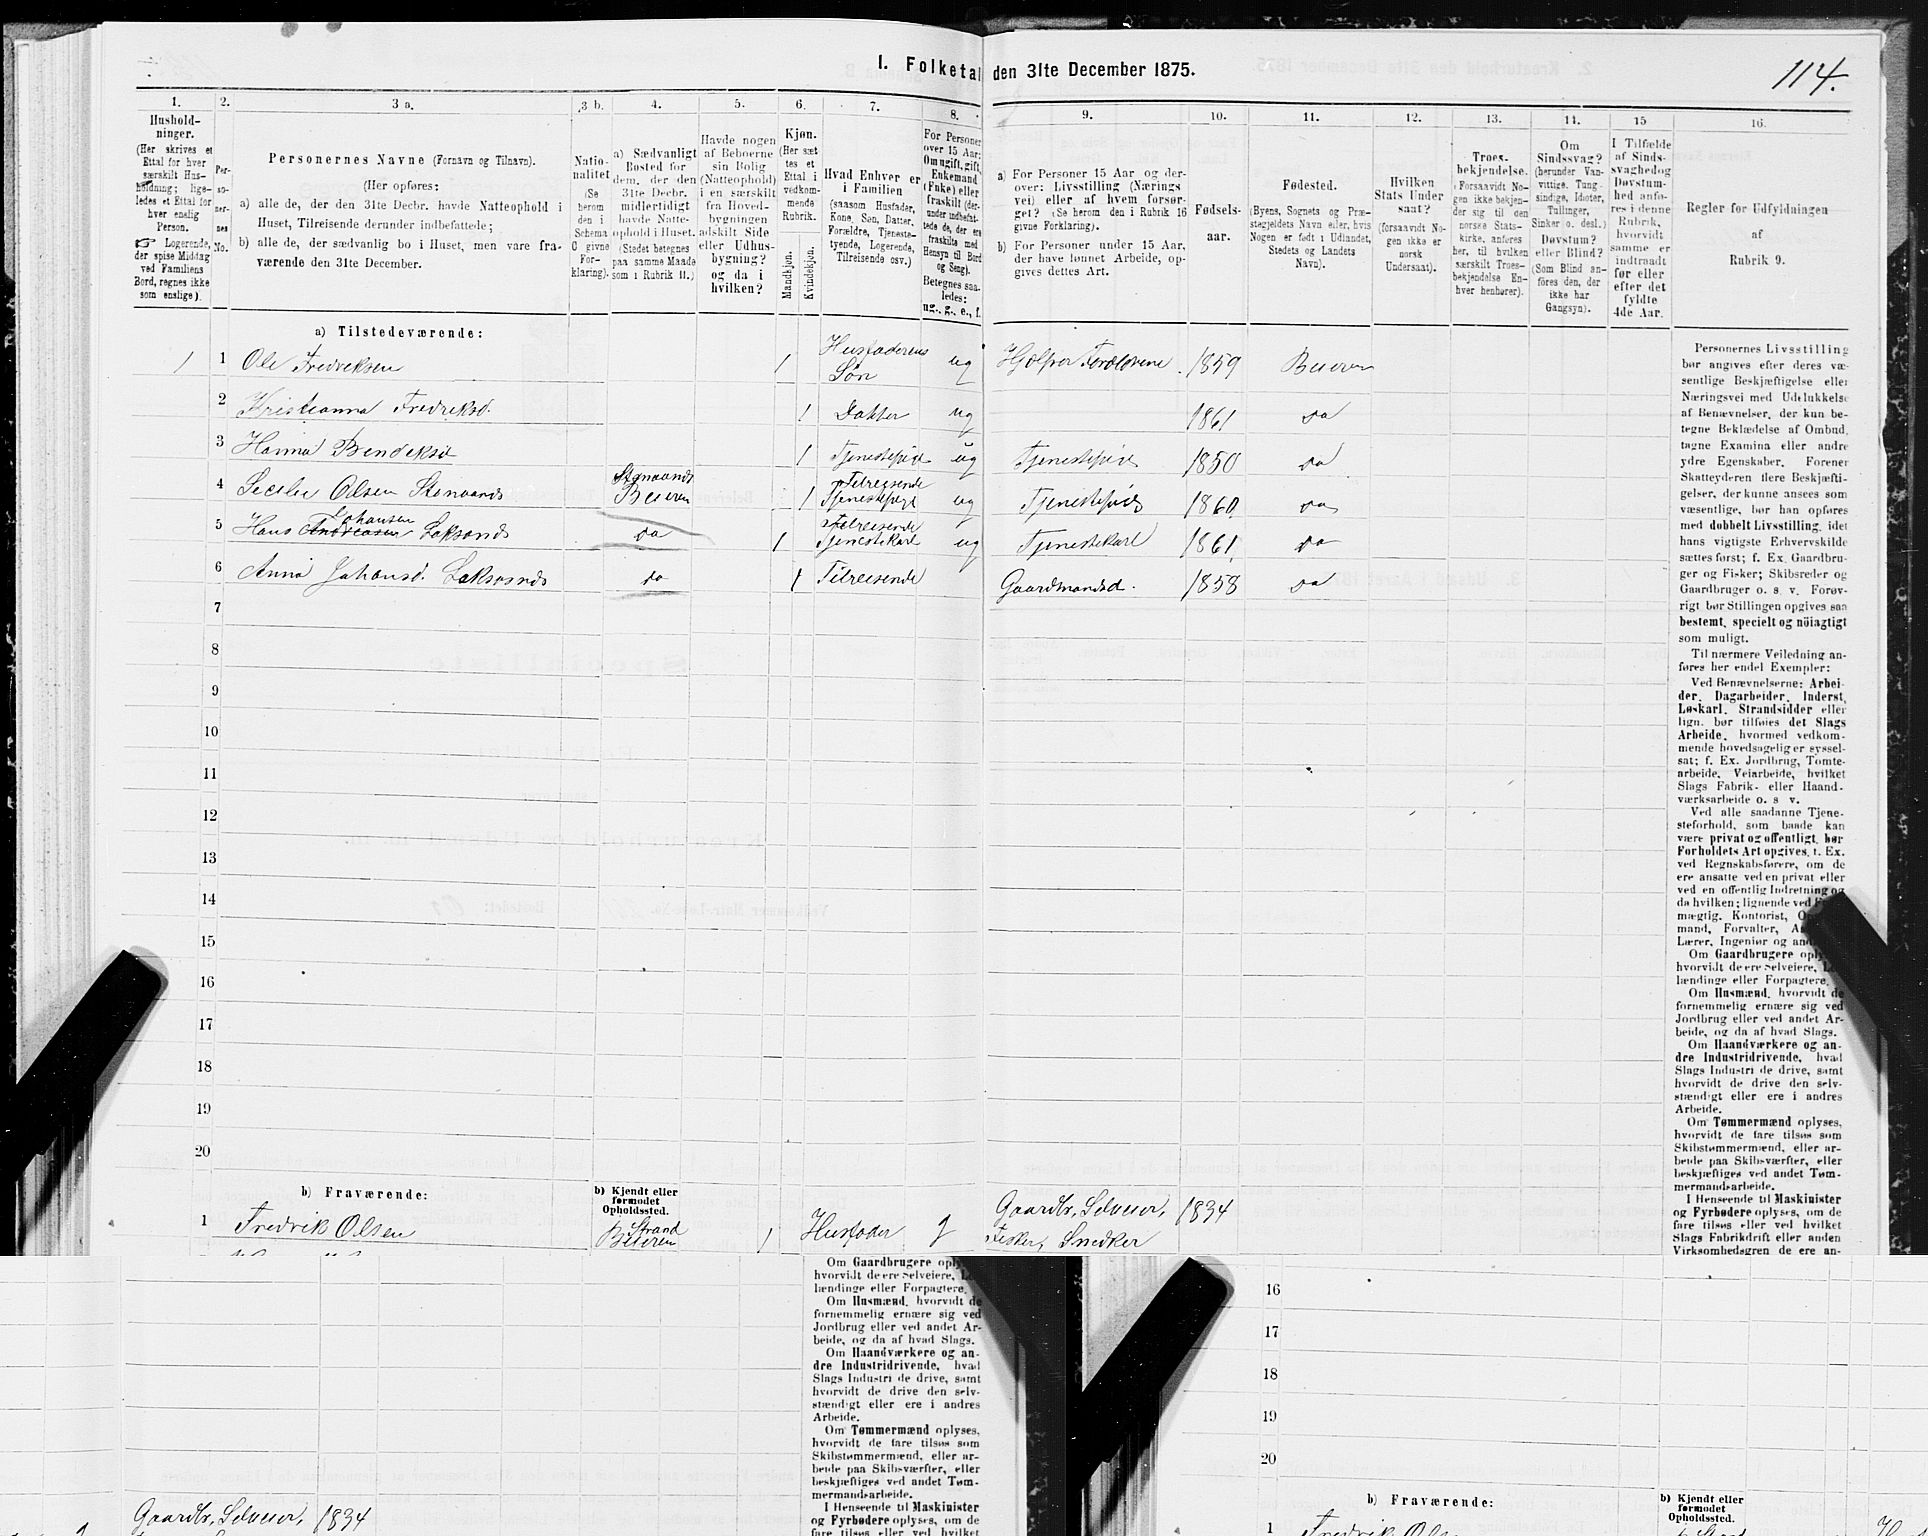 I. Folketal den 31te December 1875.
114.
1.
Hushold-
ninger.
(Her skrives et
Ettal for hver
særskilt Hus-
holdning; lige-
ledes et Ettal for
hver enslig
Person.
Logerende,
der spise Middag
ved Familiens
Bord, regnes ikke
som enslige).
2.
Per-
so-
ner-
nes
No.
3 a.
Personernes Navne (Fornavn og Tilnavn).
(Her opføres:
a) alle de, der den 31te Decbr. havde Natteophold i
Huset, Tilreisende derunder indbefattede;
b) alle de, der sædvanlig bo i Huset, men vare fra-
værende den 31te December.
3 b.
Natio-
nalitet
(Se
herom
den i
Schema
C givne
For-
klaring).
4.
a) Sædvanligt
Bosted for
dem, der den
31te Decbr.
midlertidigt
havde Natte-
ophold i Huset.
(Stedet betegnes
paa samme Maade
som i Rubrik 11.)
5.
Havde nogen
af Beboerne
sin Bolig
(Natteophold)
i en særskilt
fra Hoved-
bygningen
adskilt Side
eller Udhus-
bygning?
og da i
hvilken?
6.
Kjøn.
(Her sæt-
tes et
Ettal i
vedkom-
mende
Rubrik.
Mandkjøn.
Kvindekjøn.
7.
Hvad Enhver er
i Familien
(saasom Husfader,
Kone, Søn, Datter,
Forældre, Tjeneste-
tyende, Logerende,
Tilreisende osv.)
8.
For Personer
over 15 Aar:
Om ugift, gift,
Enkemand
(Enke) eller
fraskilt (der-
under indbefat-
tede de, der ere
fraskilte med
Hensyn til Bord
og Seng).
Betegnes saa-
ledes:
ug., g., e., f.
9.
a) For Personer 15 Aar og der-
over: Livsstilling (Nærings
vei) eller af hvem forsør-
get? (Se herom den i Rubrik 16
givne Forklaring).
b) For Personer under 15 Aar,
der have lønnet Arbeide, op-
gives dettes Art.
10.
Fødsels-
aar.
11.
Fødested.
(Byens, Sognets og Præ-
stegjeldets Navn eller, hvis
Nogen er født i Udlandet,
Stedets og Landets
Navn).
12.
Hvilken
Stats Under
saat?
(forsaavidt No-
gen ikke er
norsk
Undersaat).
13.
Troes-
bekjendelse.
(Forsaavidt No-
gen ikke bekjen-
der sig til den
norske Stats-
kirke, anføres
her, til hvilken
særskilt Troes-
bekjendelse En-
hver henhører).
14.
Om
Sindssvag?
(herunder Van-
vittige, Tung-
sindige, Idioter,
Tullinger,
Sinker o. desl.)
Døvstum?
eller Blind?
(Som Blind an-
føres den, der
ikke har
Gangsyn).
15
I Tilfælde
af Sinds-
svaghed og
Døvstum-
hed anfø-
res i denne
Rubrik,
hvorvidt
samme er
indtraadt
før eller
efter det
fyldte
4de Aar.
16.
Regler for Udfyldningen
af
Rubrik 9.
a) Tilstedeværende:
1 1 Ole Fredreksen 1 Husfaderens Søn ug Hjælper Forældrene 1859 Beieren
2 Kristianna Fredreksd. 1 Datter ug 1861 Do
3 Hanna Bendeksd 1 Tjenestepige ug Tjenestepige 1850 Do
4 Secelie Olsen Stenaand Beieren 1 Tilreisende Tjenestepige ug Tjenestepige 1860 Do
5 Hans Andreasen Johansen Leksand Do 1 Tilreisende Tjenestekarl ug Tjenestekarl 1861 Do
6 Anna Johansd. Do 1 Tilreisende Gaardmandsd. 1858 Do
7
8
9
10
11
12
13
14
15
16
17
18
19
20
b) Fraværende:
b) Kjendt eller
formodet
Opholdssted.
1 Fredrik Olsen Strand Beieren 1 Husfader g Gaardbr, Selveier, Fisker, Snedker 1834
Personernes Livsstilling
bør angives efter deres væ-
sentlige Beskjæftigelse eller
Næringsvei med Udelukkelse
af Benævnelser, der kun be-
tegne Beklædelse af Ombud,
tagne Examina eller andre
ydre Egenskaber. Forener
Skatteyderen flere Beskjæfti-
gelser, der kunne ansees som
væsentlige, bør han opføres
med dobbelt Livsstilling, idet
hans vigtigste Erhvervskilde
sættes først; f. Ex. Gaardbru-
ger og Fisker; Skibsreder og
Gaardbruger o. s. v. Forøv-
rigt bør Stillingen opgives saa
bestemt, specielt og nöiagtigt
som muligt.
Til nærmere Veiledning an-
føres her endel Exempler:
Ved Benævnelserne: Arbei-
der, Dagarbeider, Inderst,
Løskarl, Strandsidder eller
lign. bør tilføies det Slags
Arbeide, hvormed vedkom-
mende hovedsagelig er syssel-
sat; f. Ex. Jordbrug, Tomte-
arbeide, Veiarbeide, hvilket
Slags Fabrik- eller Haand-
værksarbeide o. s v.
Ved alle saadanne Tjene-
steforhold, som baade kan
være privat og offentligt, bør
Forholdets Art opgives, t. Ex.
ved Regnskabsførere, om de
ere ansatte ved en privat eller
ved en offentlig Indretning og
da hvilken; lignende ved
mægtig, Kontorist,
mand, Forvalter,
Lærer, Ingeniør og
Om Gaardbrugere
hvorvidt de ere Selveiere,
lændinge eller Forpagtere.
Om Husmænd, hvorvidt de
fornemmelig ernære sig ved
Jordbrug eller ved andet Ar-
beide, og da af hvad Slags.
Om Haandværkere og an-
dre Industridrivende, hvad
Slags Industri de drive, samt
hvorvidt de drive den selv-
stændigt eller ere i andres
Arbeide.
Om Tømmermænd oplyses,
hvorvidt de fare tilsøs som
Skibstømmermænd, eller ar-
beide paa Skibsværfter, eller
beskjæftiges ved andet Tøm-
mermandsarbeide.
I Henseende til Maskinister
og Fyrbødere oplyses, om de
fare tilsøs eller ved hvilket
Slags Fabrikdrift eller anden
Virksomhedsgren de ere an-
Om Gaardbrugere
hvorvidt de ere Selveiere,
lændinge eller Forpagtere.
Om Husmænd, hvorvidt de
fornemmelig ernære sig ved
Jordbrug eller ved andet Ar-
beide, og da af hvad Slags.
Om Haandværkere og an-
dre Industridrivende, hvad
Slags Industri de drive, samt
hvorvidt de drive den selv-
stændigt eller ere i andres
Arbeide.
Om Tømmermænd oplyses,
hvorvidt de fare tilsøs som
Skibstømmermænd, eller ar-
beide paa Skibsværfter, eller
beskjæftiges ved andet Tøm-
mermandsarbeide.
I Henseende til Maskinister
og Fyrbødere oplyses, om de
fare tilsøs eller ved hvilket
Gaardbr, Selveier, 1834
16
17
18
19
20
b) Fraværende:
b) Kjendt eller
formodet
Opholdssted.
1 Fredrik Olsen